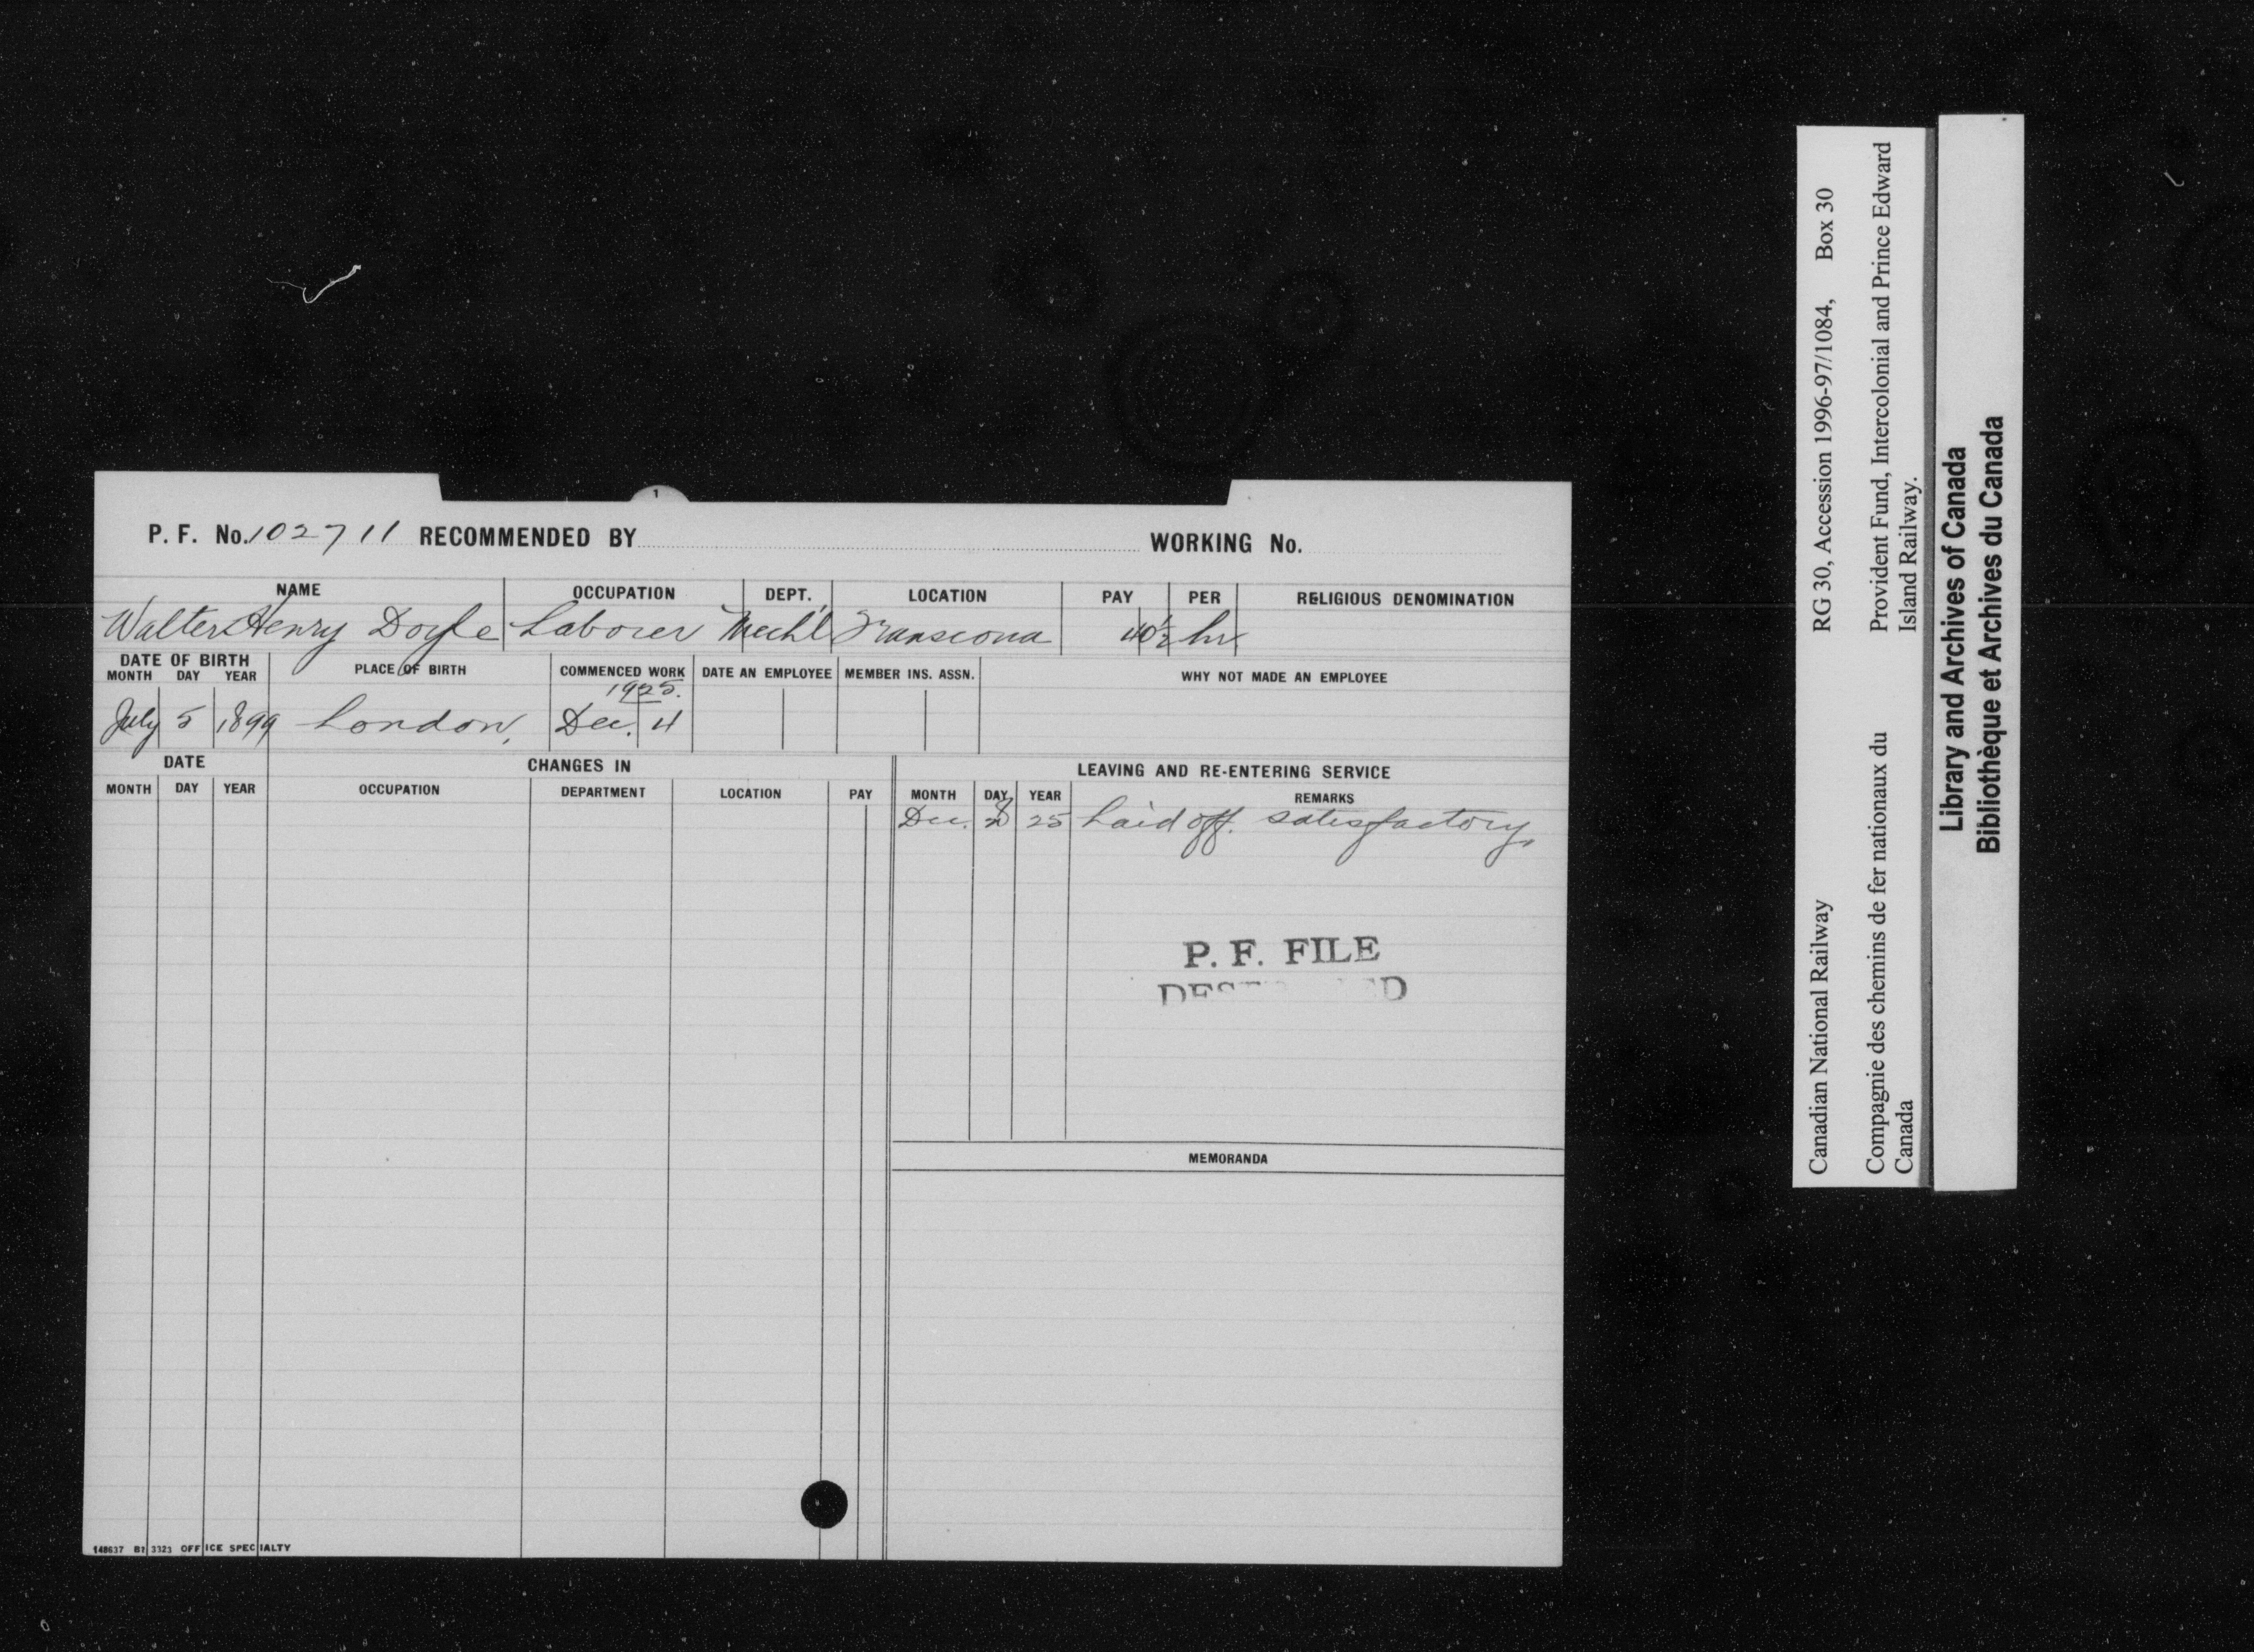 1
P. F. No. 102711 RECOMMENDED BY WORKING No.
NAME OCCUPATION DEPT. LOCATION PAY PER RELIGIOUS DENOMINATION
Walter Henry Doyle Laborer Mech'l Transcona 40½ hr
DATE OF BIRTH PLACE OF BIRTH COMMENCED WORK DATE AN EMPLOYEE MEMBER INS. ASSN. WHY NOT MADE AN EMPLOYEE
MONTH DAY YEAR
1925.
July 5 1899 London, Dec. 4
DATE CHANGES IN LEAVING AND RE-ENTERING SERVICE
MONTH DAY YEAR OCCUPATION DEPARTMENT LOCATION PAY MONTH DAY YEAR REMARKS
Dec. 25 Laid off. satisfactory,
P. F. FILE
MEMORANDA
148637 B1 3323 OFFICE SPECIALTY
Canadian National Railway RG 30, Accession 1996-97/1084, Box 30
Compagnie des chemins de fer nationaux du Provident Fund, Intercolonial and Prince Edward
Canada Island Railway.
Library and Archives of Canada
Bibliothèque et Archives du Canada